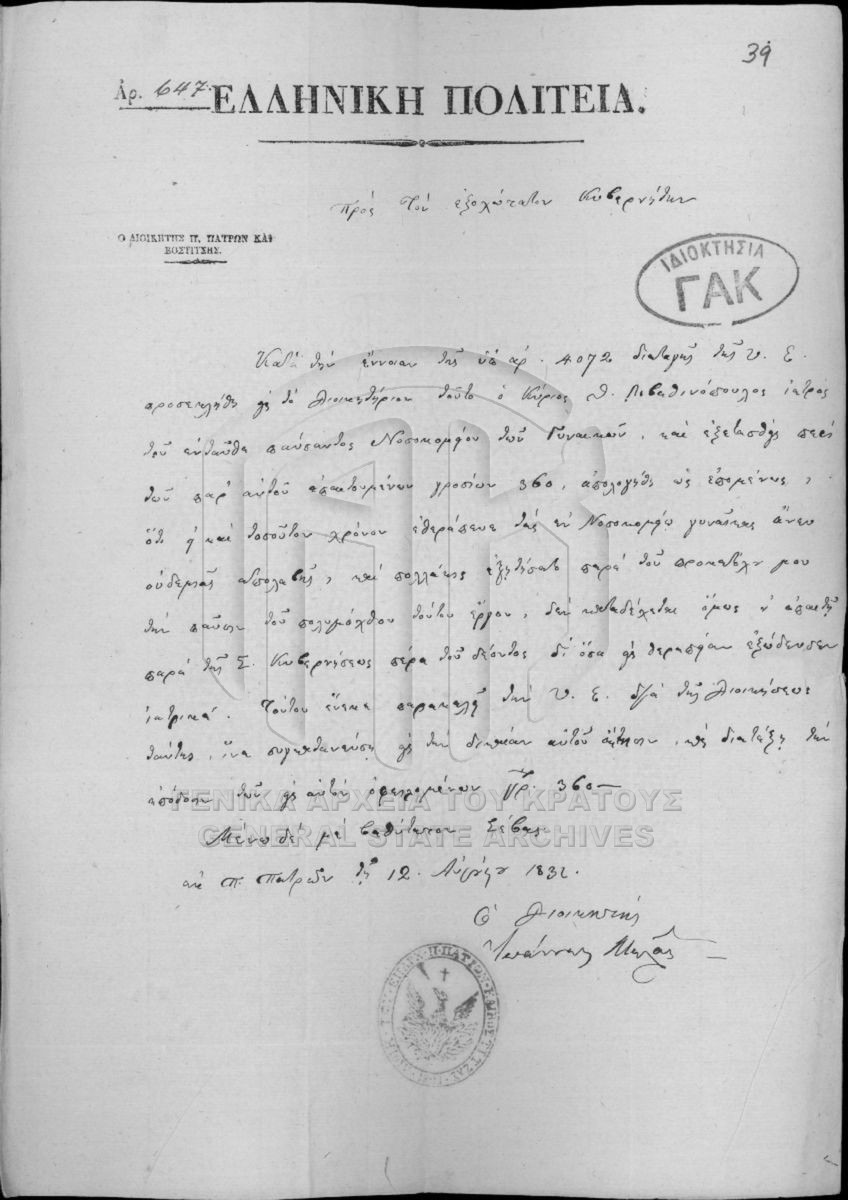 39
Ἀρ. 647. ΕΛΛΗΝΙΚΗ ΠΟΛΙΤΕΙΑ.
Πρὸς τὸν ἐξοχώτατον Κυβερνήτην
Ο ΔΙΟΙΚΗΤΗΣ Π. ΠΑΤΡΩΝ ΚΑΙ
ΒΟΣΤΙΤΣΗΣ.
ΙΔΙΟΚΤΗΣΙΑ
ΓΑΚ
Κατὰ τὴν ἔννοιαν τῆς ὑπ ἀρ. 4072 διαταγῆς τῆς Υ. Ε.
προσεκλήθη εἰς τὸ Διοικητήριον τοῦτο ὁ Κύριος Θ. ἰατρὸς
τοῦ ἐνταῦθα παύσαντος Νοσοκομείου τῶν Γυναικῶν, καὶ ἐξετασθεὶς περὶ
τῶν παρ' αὐτοῦ ἀπαιτουμένων γροσίων 360, ἀπολογήθη ὡς ἑπομένως,
ὅτι καὶ τοσοῦτον χρόνον ἐθεράπευε τὰς ἐν Νοσοκομείῳ γυναῖκας ἄνευ
οὐδεμιᾶς ἀπολαβῆς, καὶ πολλάκις ἐζητήσατο παρὰ τοῦ προκατόχου μου
τὴν παῦσιν τοῦ πολυμόχθου τούτου ἔργου, δὲν καταδέχεται ὅμως ν' ἀπαιτῇ
παρὰ τῆς Σ. Κυβερνήσεως πέρα τοῦ δέοντος δι' ὅσα εἰς θεραπείαν ἐξώδευσεν
ἰατρικά. Τούτου ἕνεκα παρακαλεῖ τὴν Υ. Ε. διὰ τῆς Διοικήσεως
ταύτης, ἵνα εἰς τὴν δικαίαν αὐτοῦ αἴτησιν, καὶ διατάξῃ τὴν
ἀπόδοσιν τῶν εἰς αὐτὸν ὀφειλομένων γρ. 360—
ΓΕΝΙΚΑ ΑΡΧΕΙΑ ΤΟΥ ΚΡΑΤΟΥΣ
GENERAL STATE ARCHIVES
Μένω δὲ μὲ βαθύτατον Σέβας
ἐκ Π. Πατρῶν τῇ 12. 1832.
Ὁ Διοικητὴς
Ἰωάννης